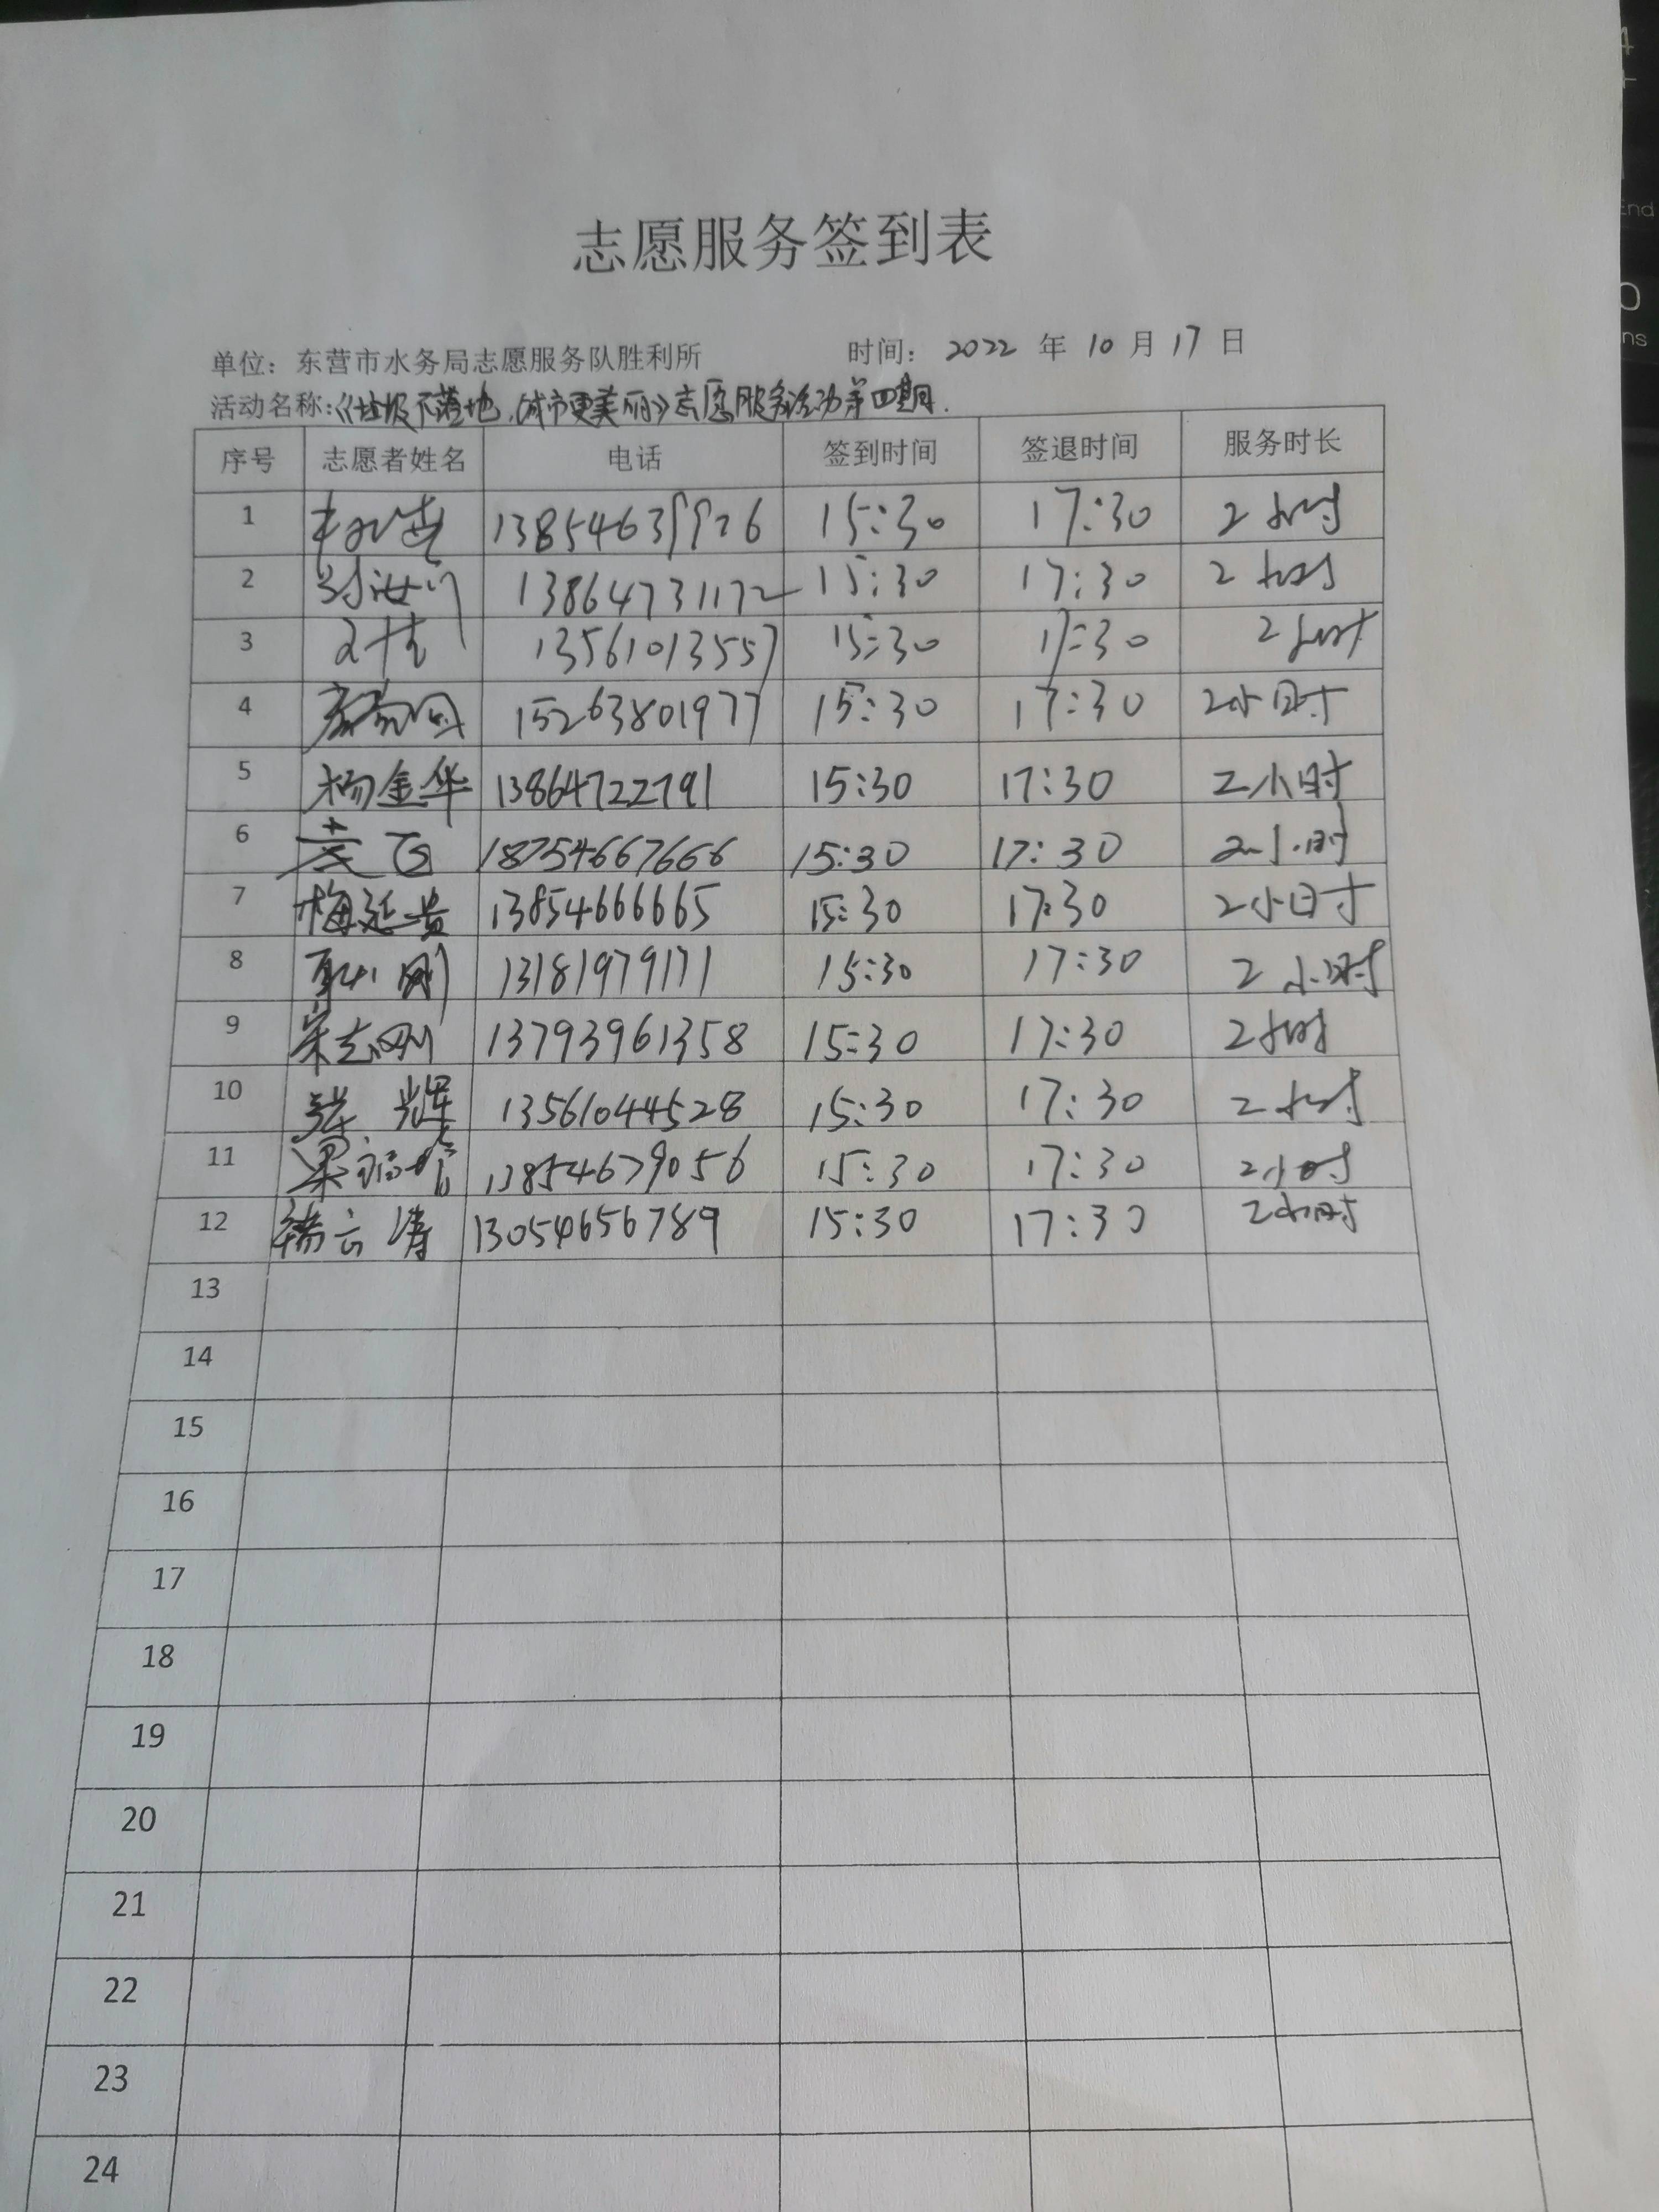 志愿服务签到表
单位：东营市水务局志愿服务队胜利所 时间：2022 年 10 月 17 日
活动名称：《垃圾不落地，城市更美丽》志愿服务活动第四期.
序号 志愿者姓名 电话 签到时间 签退时间 服务时长
1 15:30 17:30 2小时
2 13864731172 15:30 17:30 2小时
3 13561013557 15:30 17:30 2小时
4 15263801977 15:30 17:30 2小时
5 杨金华 13864722791 15:30 17:30 2小时
6 18754667666 15:30 17:30 2小时
7 梅延贵 13854666665 15:30 17:30 2小时
8 13181979171 15:30 17:30 2小时
9 宋志刚 13793961358 15:30 17:30 2小时
10 张辉 13561044528 15:30 17:30 2小时
11 13854679056 15:30 17:30 2小时
12 13054656789 15:30 17:30 2小时
13
14
15
16
17
18
19
20
21
22
23
24
End
0